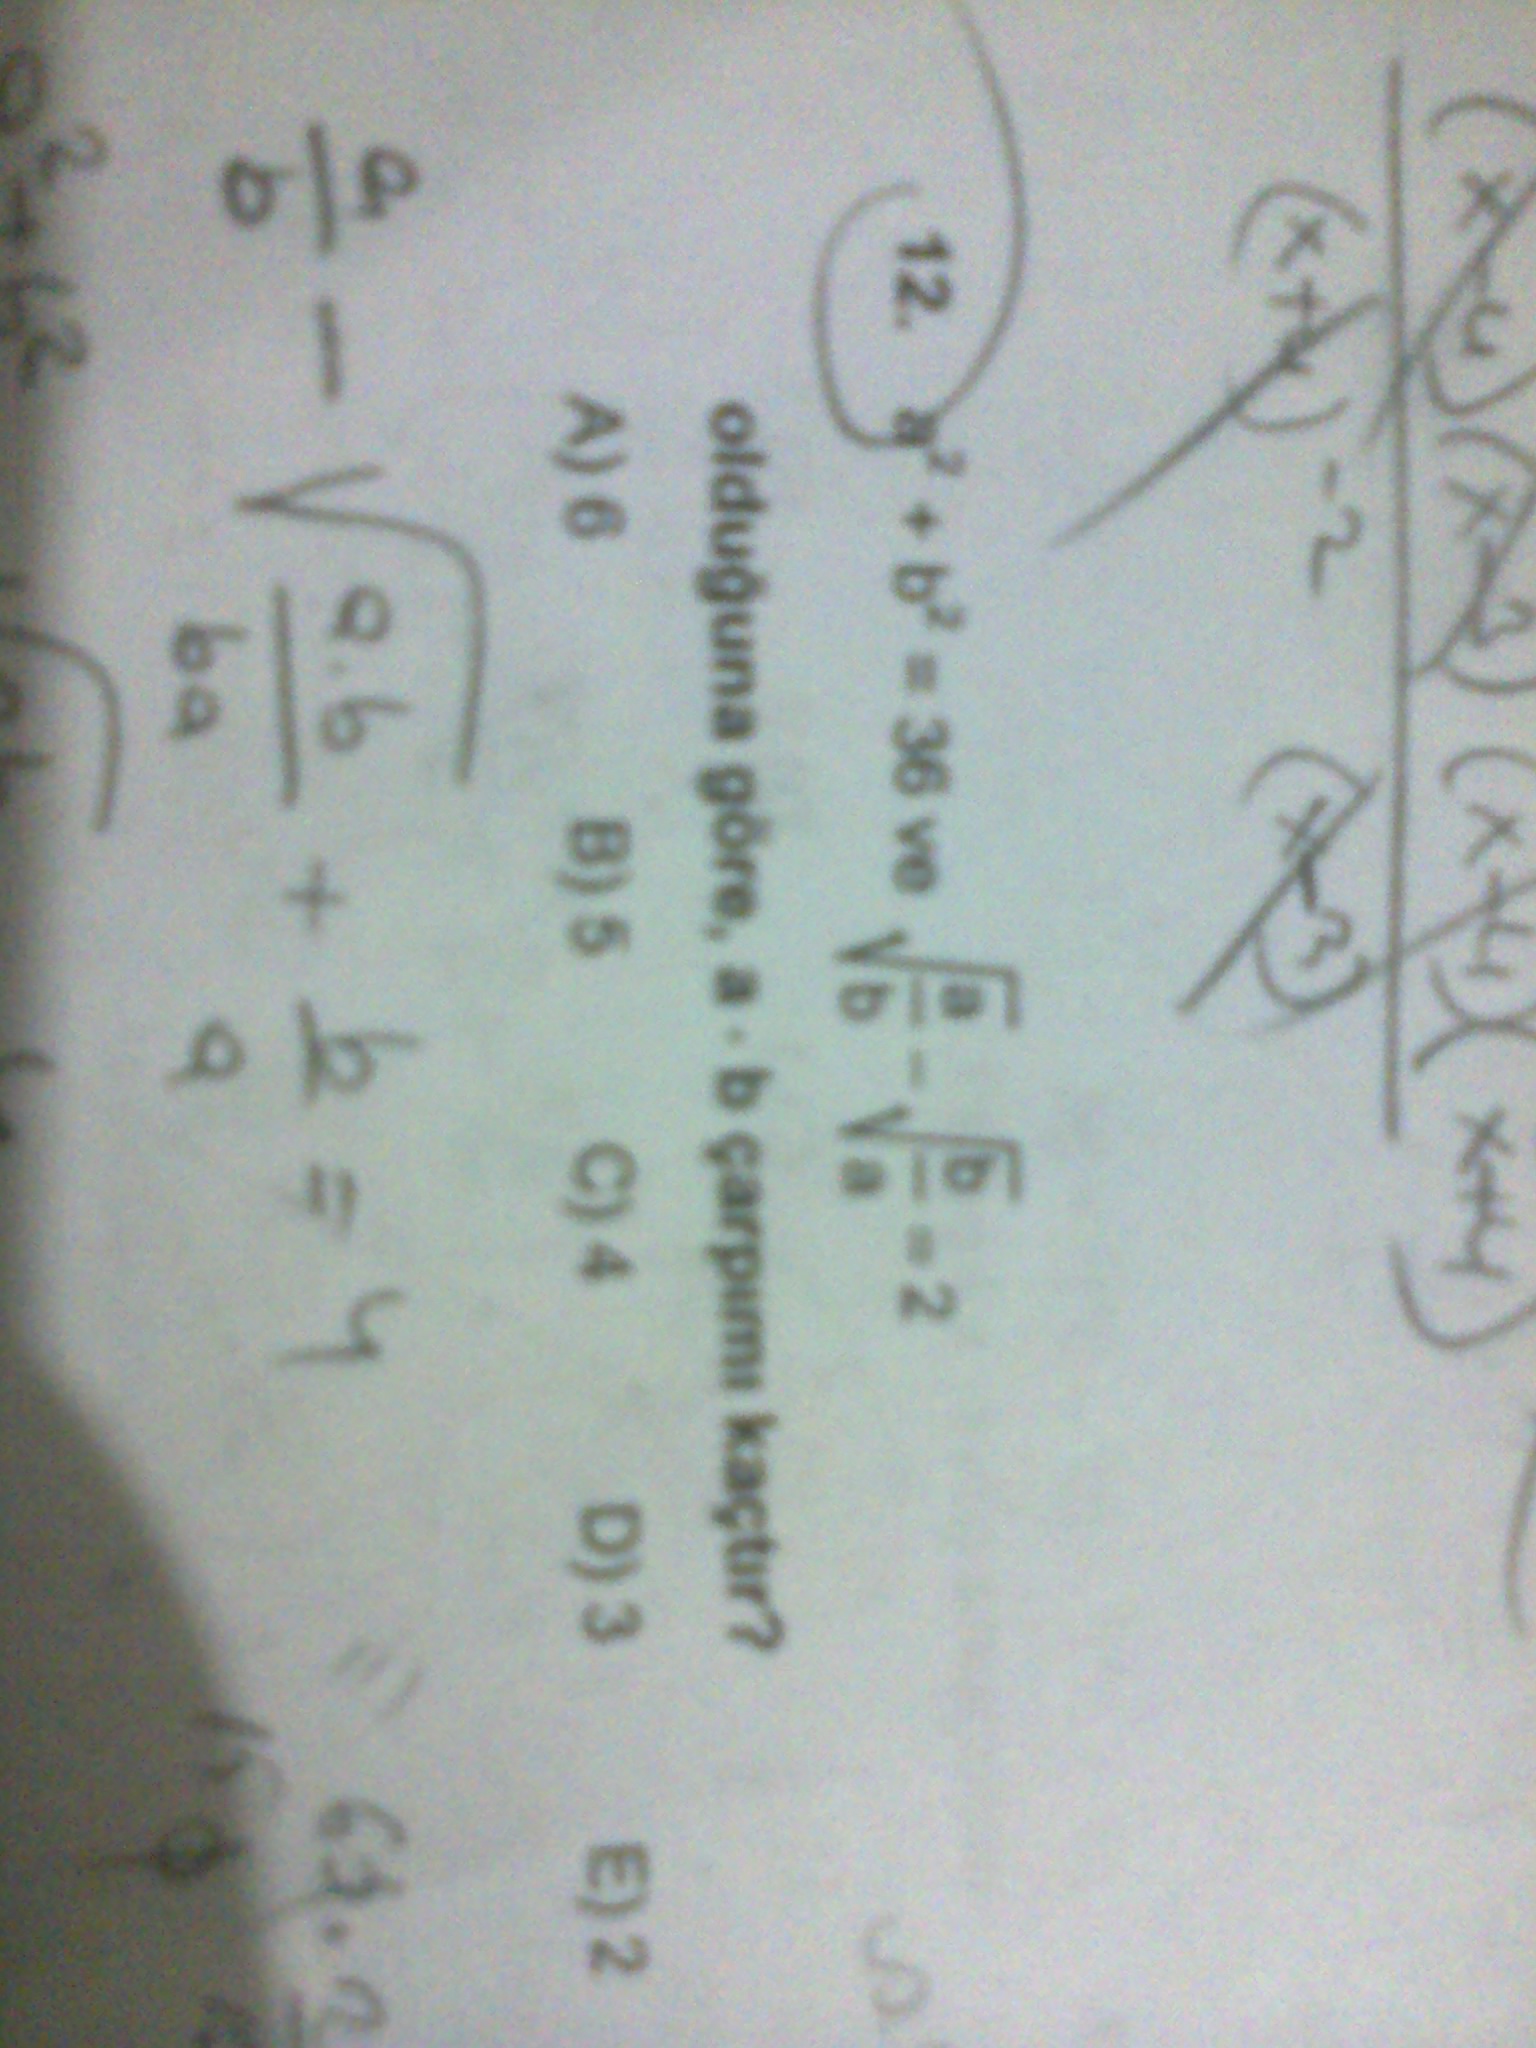 (x-4) (x-3) (x+4)(x+4)
(x+4) -2 (x-3)
12. a² + b² = 36 ve √a/b - √b/a = 2
olduğuna göre, a . b çarpımı kaçtır?
A) 6 B) 5 C) 4 D) 3 E) 2
a/b - √a.b/ba + b/a = 4